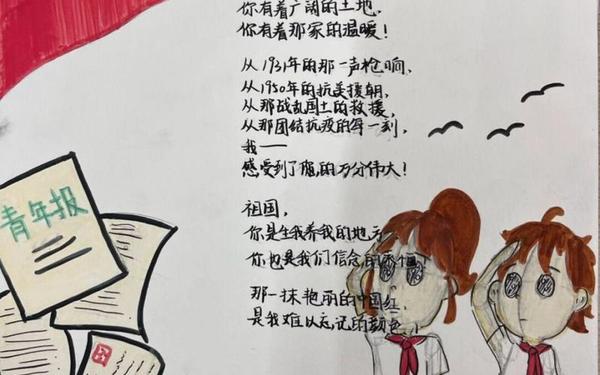 你有着广阔的土地,
你有着那家的温暖!
从1931年的那一声枪响,
从1950年的抗美援朝,
从那战乱国土的救援,
从那团结抗疫的每一刻,
我——
感受到了您的万分伟大!
祖国,
你是生我养我的地方
你也是我们信念的
那一抹艳丽的中国红
是我难以忘记的颜色
青年报